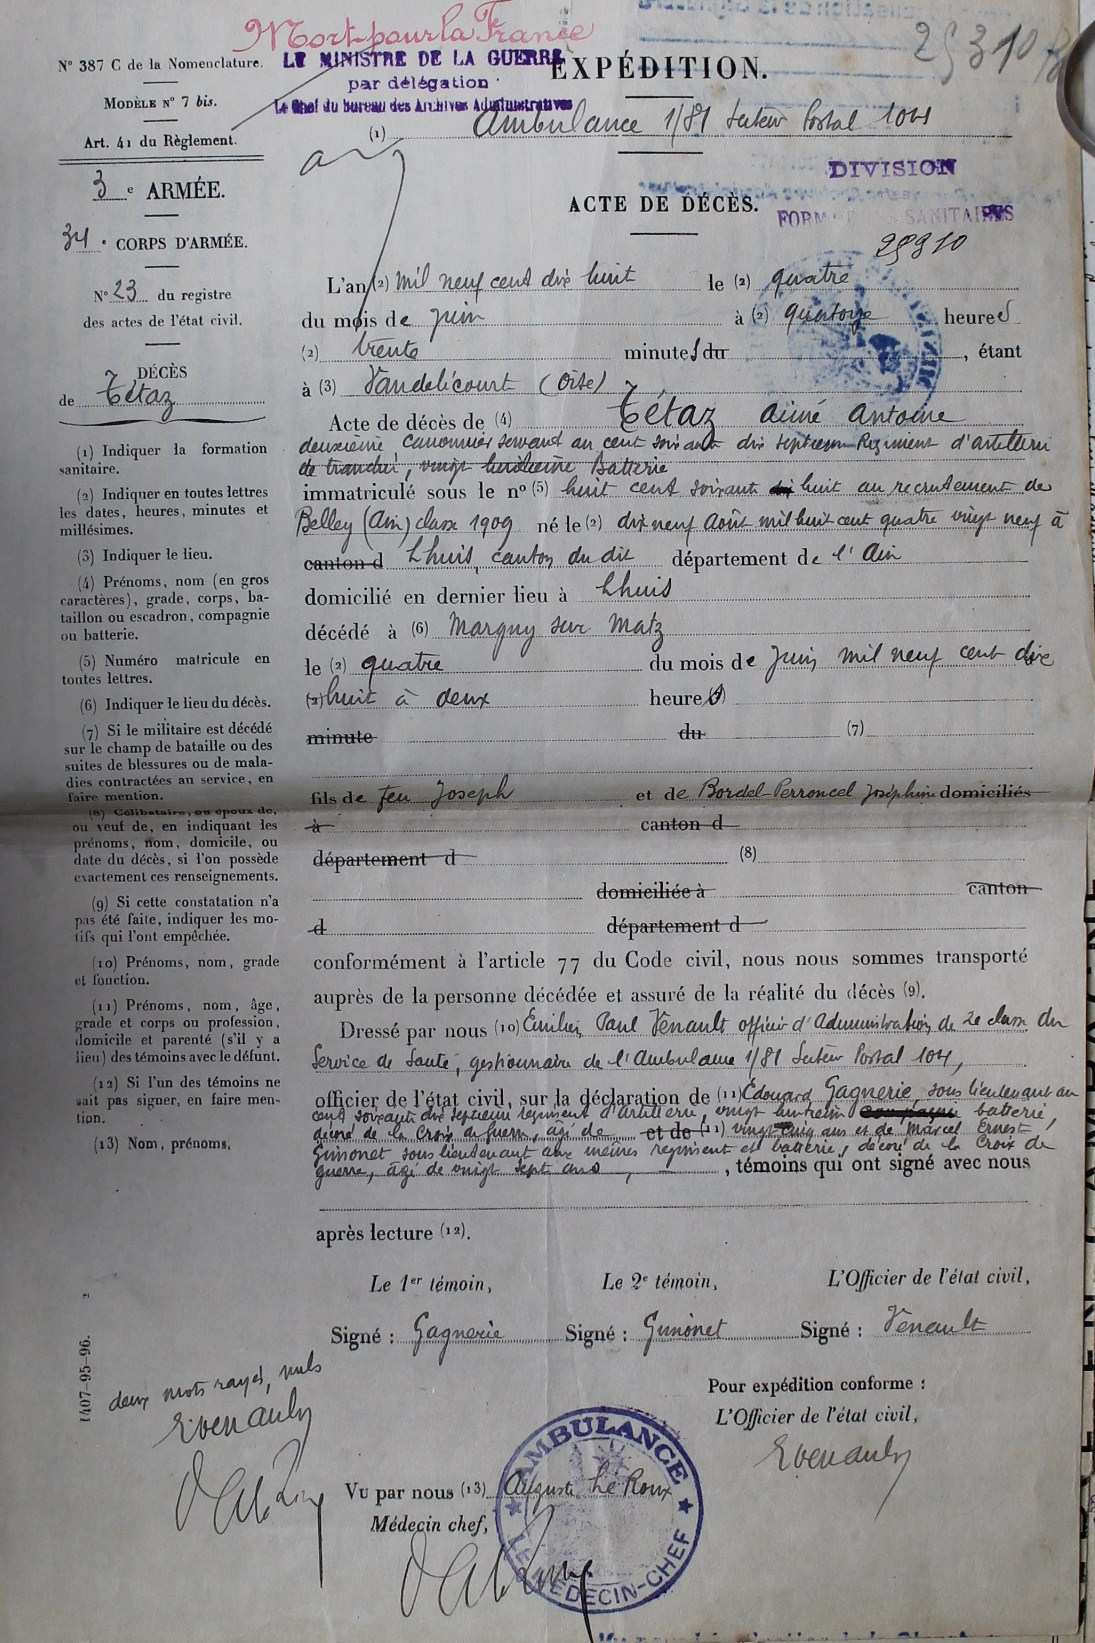 Mort pour la France
LE MINISTRE DE LA GUERRE
par délégation
Le Chef du bureau des Archives Administratives
25310
N° 387 C de la Nomenclature.
MODÈLE N° 7 bis.
Art. 41 du Règlement.
3e ARMÉE.
34e CORPS D'ARMÉE.
N° 23 du registre
des actes de l'état civil.
DÉCÈS
de Tétaz
(1) Indiquer la formation
sanitaire.
(2) Indiquer en toutes lettres
les dates, heures, minutes et
millésimes.
(3) Indiquer le lieu.
(4) Prénoms, nom (en gros
caractères), grade, corps, ba-
taillon ou escadron, compagnie
ou batterie.
(5) Numéro matricule en
toutes lettres.
(6) Indiquer le lieu du décès.
(7) Si le militaire est décédé
sur le champ de bataille ou des
suites de blessures ou de mala-
dies contractées au service, en
faire mention.
(8) Célibataire, ou époux de,
ou veuf de, en indiquant les
prénoms, nom, domicile, ou
date du décès, si l'on possède
exactement ces renseignements.
(9) Si cette constatation n'a
pas été faite, indiquer les mo-
tifs qui l'ont empêchée.
(10) Prénoms, nom, grade
et fonction.
(11) Prénoms, nom, âge,
grade et corps ou profession,
domicile et parenté (s'il y a
lieu) des témoins avec le défunt.
(12) Si l'un des témoins ne
sait pas signer, en faire men-
tion.
(13) Nom, prénoms.
1407-95-96.
EXPÉDITION.
(1) Ambulance 1/81 Secteur Postal 104
DIVISION
ACTE DE DÉCÈS.
FORMATIONS SANITAIRES
25310
L'an (2) mil neuf cent dix huit le (2) quatre
du mois de juin à (2) quatorze heures
(2) trente minutes du, étant
à (3) Vandelicourt (Oise)
Acte de décès de (4) Tétaz aimé antoine
deuxième canonnier servant au cent soixante dix septième Régiment d'artillerie
de tranchée, vingt huitième Batterie
immatriculé sous le n° (5) huit cent soixante huit au recrutement de
Belley (Ain) classe 1909 né le (2) dix neuf Août mil huit cent quatre vingt neuf à
canton d Lhuis, canton du dit département de l'Ain
domicilié en dernier lieu à Lhuis
décédé à (6) Margny sur Matz
le (2) quatre du mois de juin mil neuf cent dix
(2) huit à deux heures
minute du (7)
fils de feu Joseph et de Bordel-Perroncel Joséphine domiciliés
à canton d
département d (8)
domiciliée à canton
d département d
conformément à l'article 77 du Code civil, nous nous sommes transporté
auprès de la personne décédée et assuré de la réalité du décès (9).
Dressé par nous (10) Emilien Paul Venault officier d'Administration de 2e classe du
Service de Santé, gestionnaire de l'Ambulance 1/81 Secteur Postal 104,
officier de l'état civil, sur la déclaration de (11) Edouard Gagnerie, sous lieutenant au
cent soixante dix septième régiment d'artillerie, vingt huitième compagnie batterie,
décoré de la Croix de guerre, agé de et de (11) vingt cinq ans et de Marcel Ernest
Gimonet sous lieutenant aux mêmes régiment et batterie, décoré de la Croix de
guerre, âgé de vingt sept ans, témoins qui ont signé avec nous
après lecture (12).
Le 1er témoin, Le 2e témoin, L'Officier de l'état civil,
Signé : Gagnerie Signé : Gimonet Signé : Venault
deux mots rayés, nuls
EVenault
Pour expédition conforme :
L'Officier de l'état civil,
EVenault
Vu par nous (13) Auguste Le Roux
Médecin chef,
AMBULANCE
LE MÉDECIN-CHEF